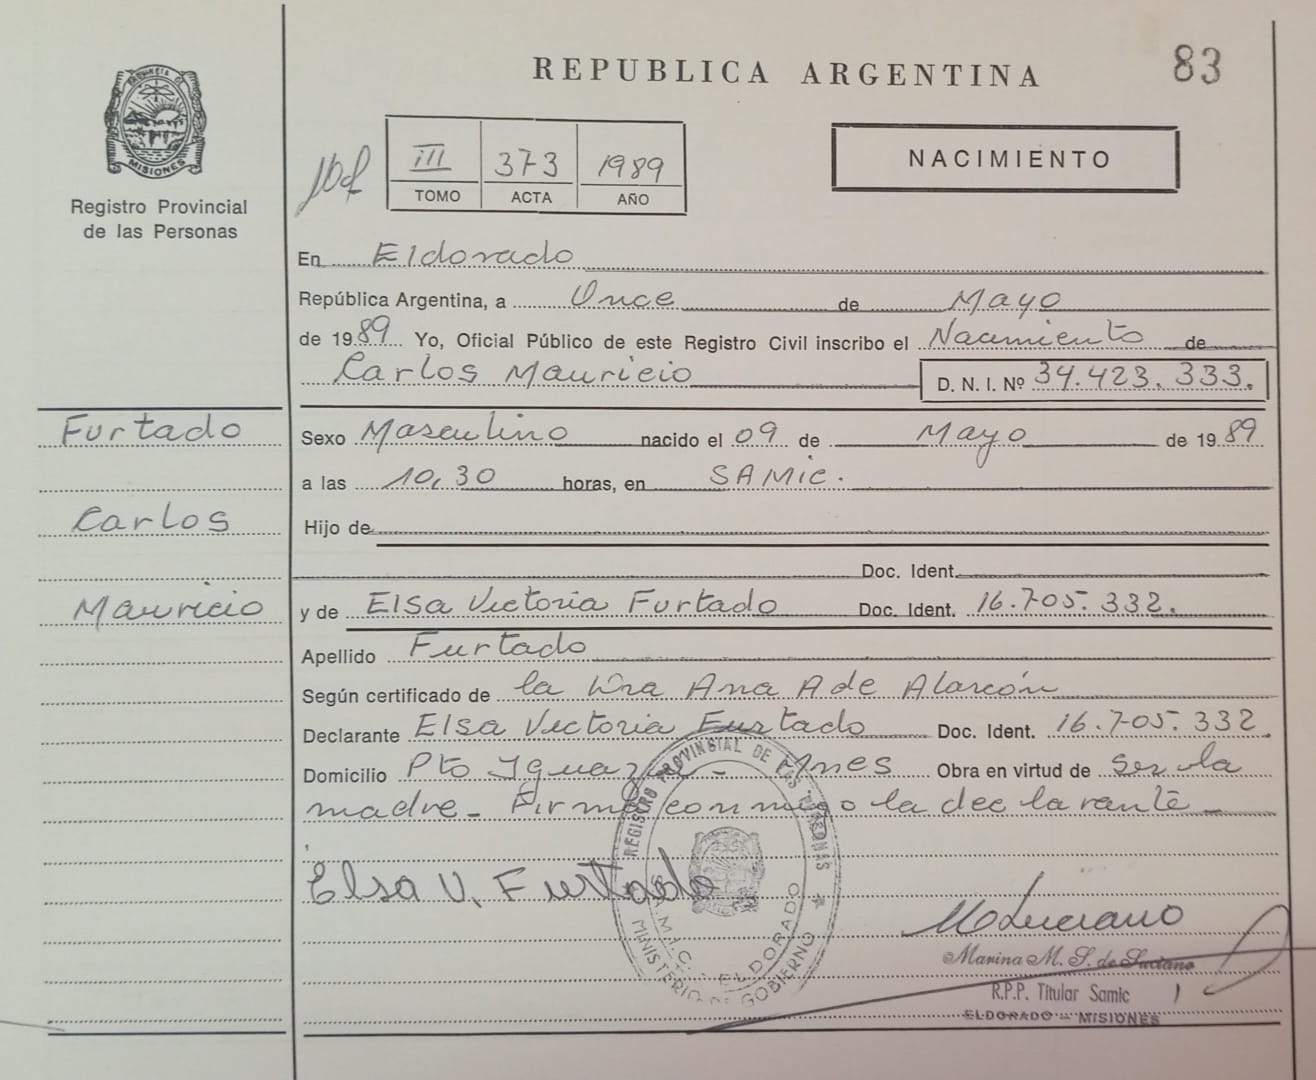 REPUBLICA ARGENTINA
83
PROVINCIA DE MISIONES
Registro Provincial
de las Personas
III 373 1989
TOMO ACTA AÑO
NACIMIENTO
En Eldorado
República Argentina, a Once de Mayo
de 1989 Yo, Oficial Público de este Registro Civil inscribo el Nacimiento de
Carlos Mauricio D. N. I. Nº 34.423.333.
Furtado
Carlos
Mauricio
Sexo Masculino nacido el 09 de Mayo de 1989
a las 10,30 horas, en SAMIC.
Hijo de
Doc. Ident.
y de Elsa Victoria Furtado Doc. Ident. 16.705.332.
Apellido Furtado
Según certificado de la Dra Ana A de Alarcón
Declarante Elsa Victoria Furtado Doc. Ident. 16.705.332
Domicilio Pto Iguazú - Mnes Obra en virtud de Ser la
madre - Firma conmigo la declarante -
Elsa V. Furtado
REGISTRO PROVINSIAL DE LAS PERSONAS
S.A.M.I.C. ELDORADO
MINISTERIO DE GOBIERNO
Marina M. S. de Luciano
R.P.P. Titular Samic
ELDORADO - MISIONES